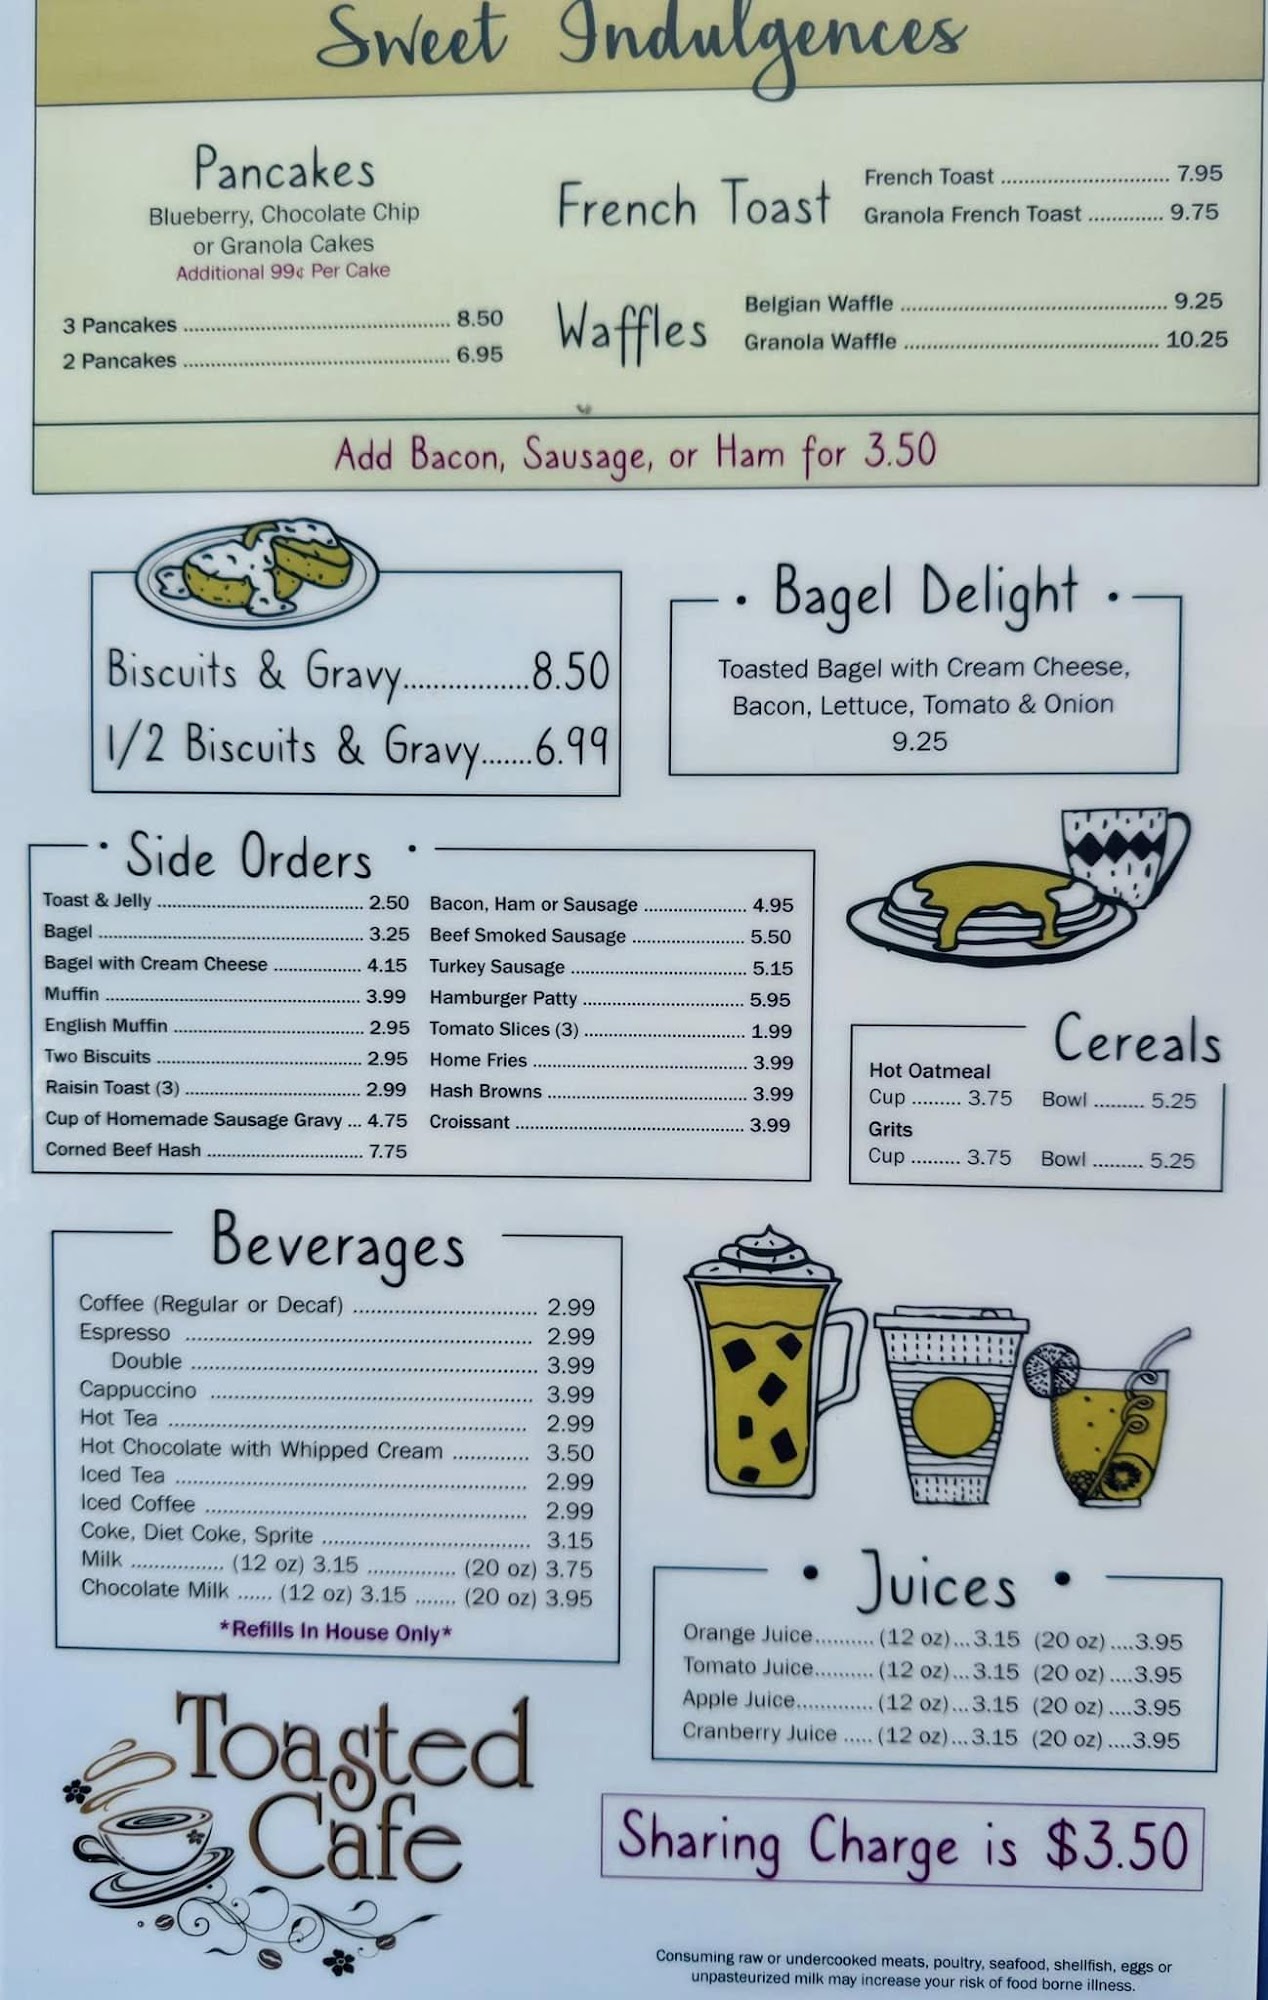 Sweet Indulgences
Pancakes
Blueberry, Chocolate Chip
or Granola Cakes
Additional 99¢ Per Cake
3 Pancakes ........ 8.50
2 Pancakes ........ 6.95
French Toast
French Toast ........ 7.95
Granola French Toast ........ 9.75
Waffles
Belgian Waffle ........ 9.25
Granola Waffle ........ 10.25
Add Bacon, Sausage, or Ham for 3.50
Biscuits & Gravy........8.50
1/2 Biscuits & Gravy.......6.99
• Bagel Delight •
Toasted Bagel with Cream Cheese,
Bacon, Lettuce, Tomato & Onion
9.25
• Side Orders •
Toast & Jelly ........ 2.50
Bagel ........ 3.25
Bagel with Cream Cheese ........ 4.15
Muffin ........ 3.99
English Muffin ........ 2.95
Two Biscuits ........ 2.95
Raisin Toast (3) ........ 2.99
Cup of Homemade Sausage Gravy ... 4.75
Corned Beef Hash ........ 7.75
Bacon, Ham or Sausage ........ 4.95
Beef Smoked Sausage ........ 5.50
Turkey Sausage ........ 5.15
Hamburger Patty ........ 5.95
Tomato Slices (3) ........ 1.99
Home Fries ........ 3.99
Hash Browns ........ 3.99
Croissant ........ 3.99
Cereals
Hot Oatmeal
Cup ......... 3.75 Bowl ......... 5.25
Grits
Cup ......... 3.75 Bowl ......... 5.25
Beverages
Coffee (Regular or Decaf) ........ 2.99
Espresso ........ 2.99
Double ........ 3.99
Cappuccino ........ 3.99
Hot Tea ........ 2.99
Hot Chocolate with Whipped Cream ........ 3.50
Iced Tea ........ 2.99
Iced Coffee ........ 2.99
Coke, Diet Coke, Sprite ........ 3.15
Milk ........ (12 oz) 3.15 ........ (20 oz) 3.75
Chocolate Milk ...... (12 oz) 3.15 ....... (20 oz) 3.95
*Refills In House Only*
• Juices •
Orange Juice.......... (12 oz)...3.15 (20 oz) ....3.95
Tomato Juice.......... (12 oz)...3.15 (20 oz) ....3.95
Apple Juice............. (12 oz)...3.15 (20 oz) ....3.95
Cranberry Juice ..... (12 oz)...3.15 (20 oz) ....3.95
Toasted
Cafe
Sharing Charge is $3.50
Consuming raw or undercooked meats, poultry, seafood, shellfish, eggs or
unpasteurized milk may increase your risk of food borne illness.